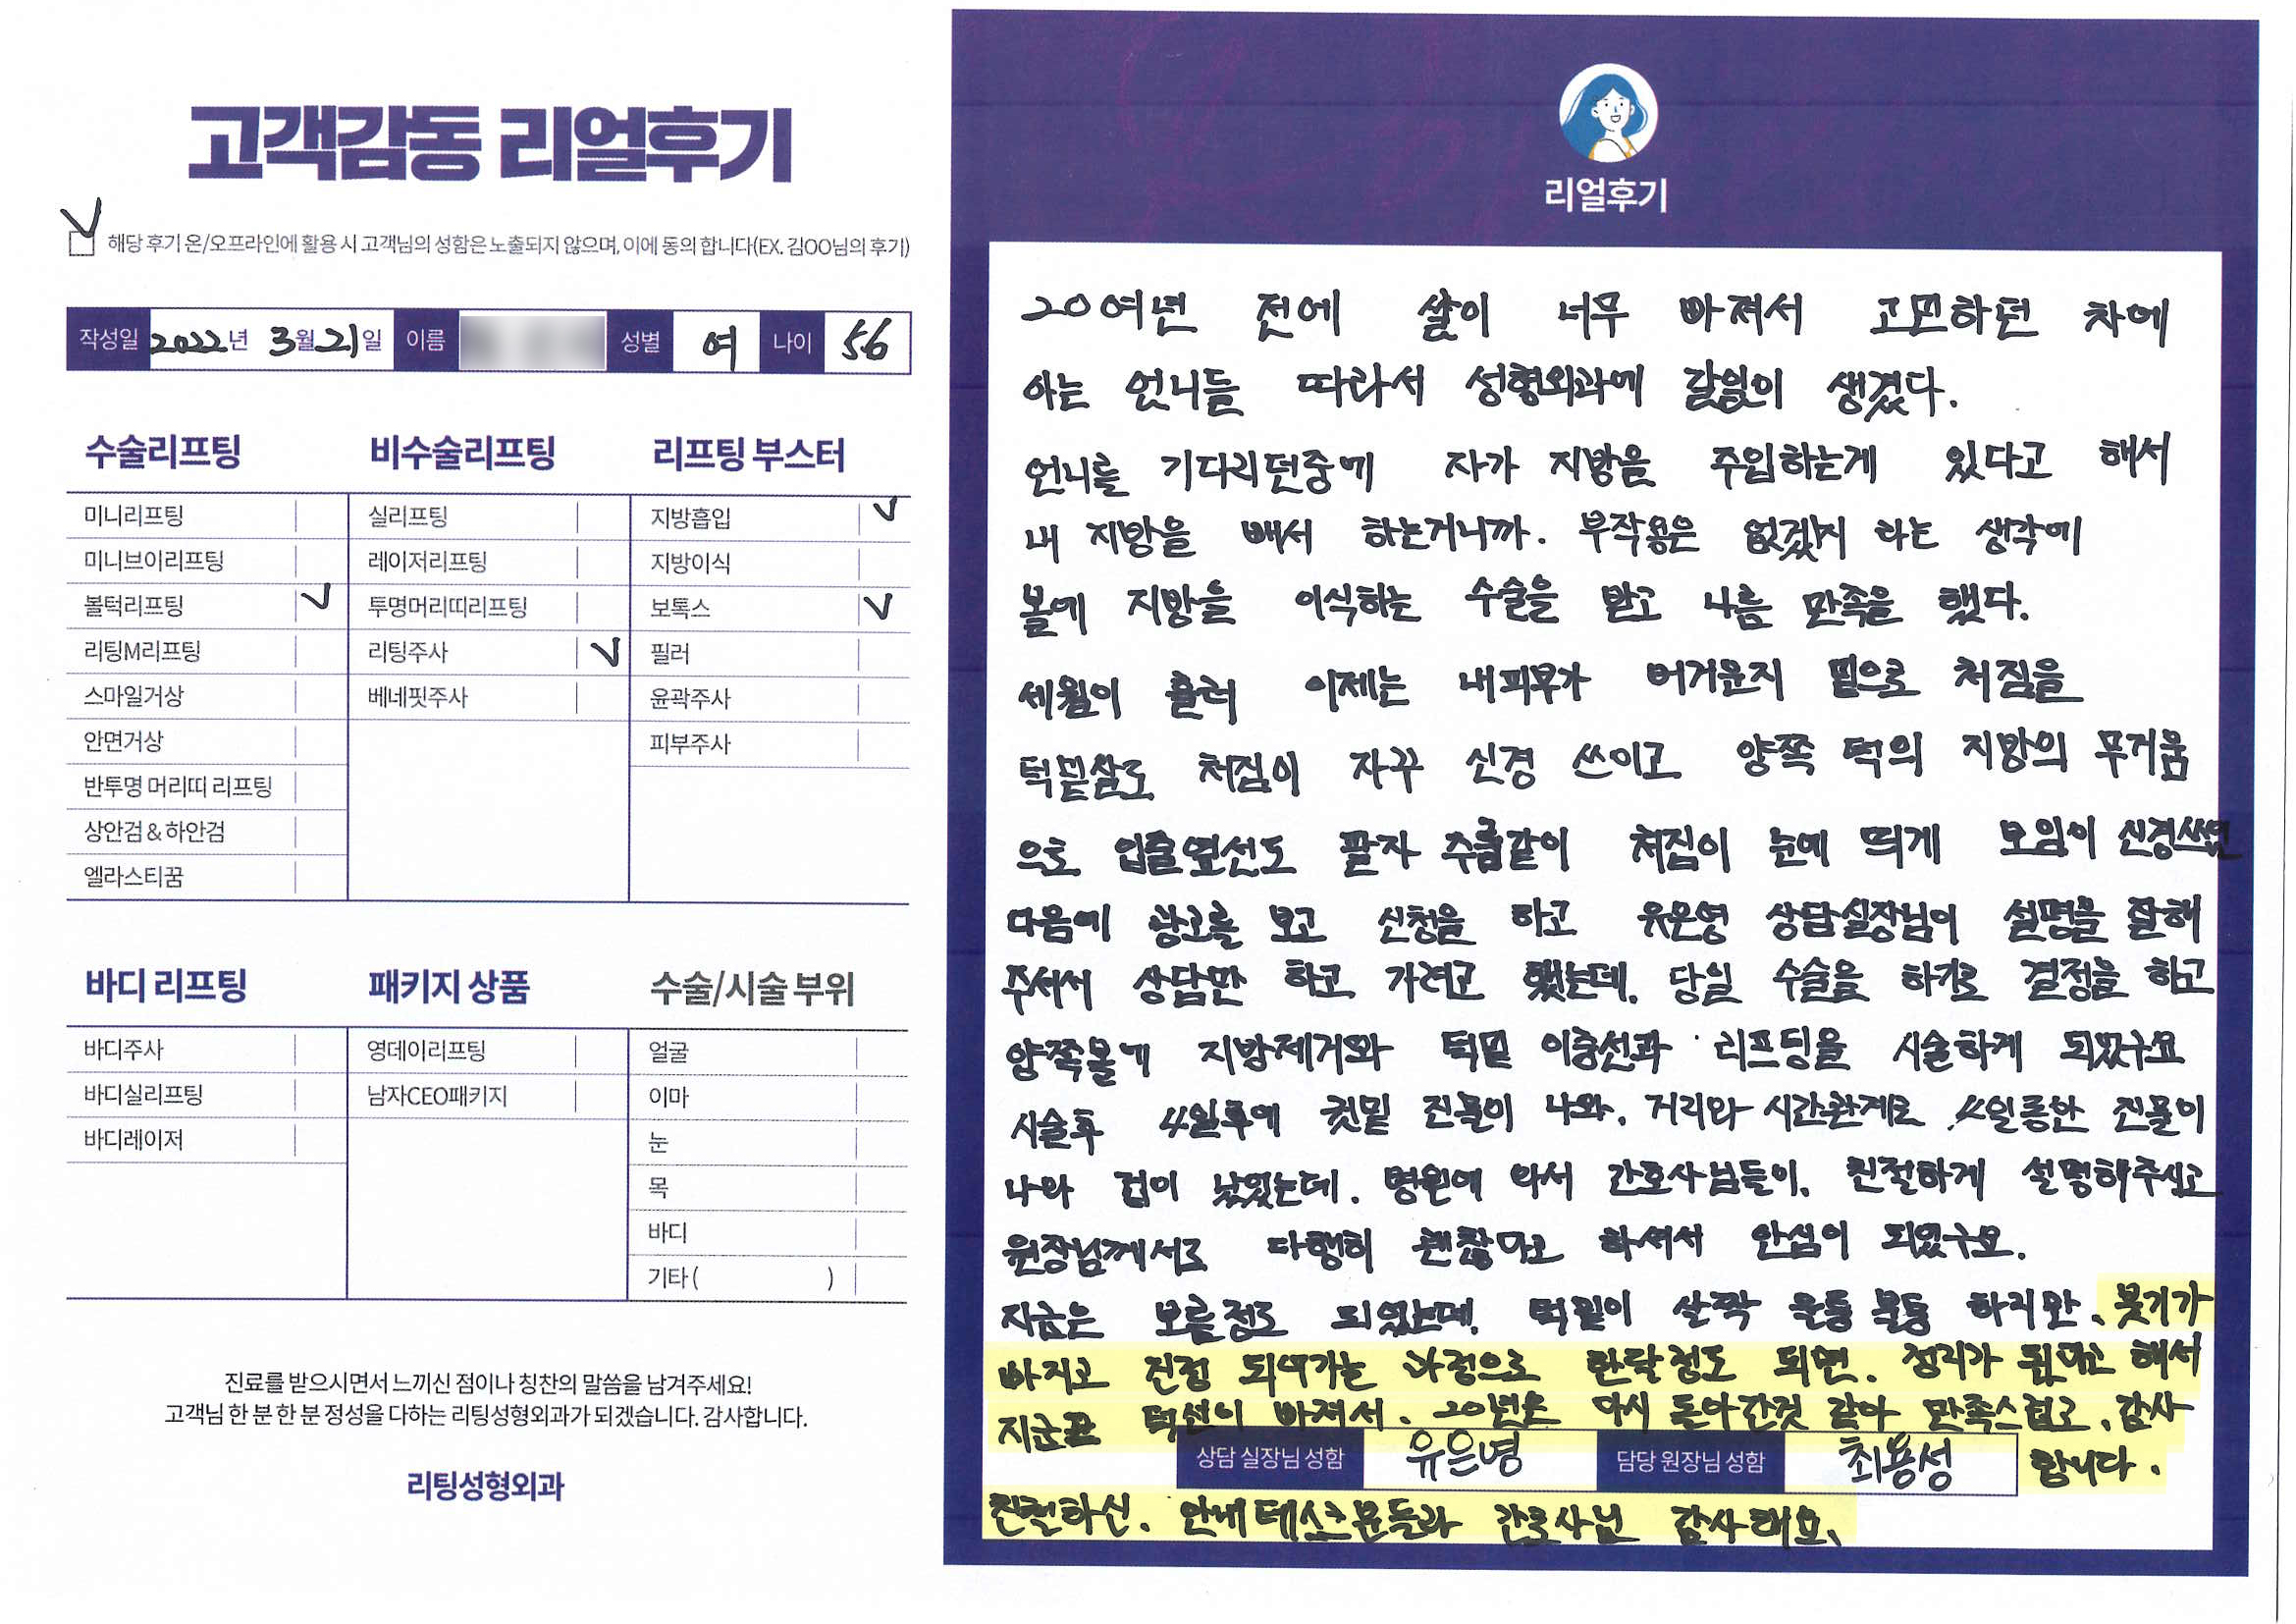 고객감동 리얼후기
해당 후기 온/오프라인에 활용 시 고객님의 성함은 노출되지 않으며, 이에 동의 합니다(EX. 김OO님의 후기)
작성일 2022년 3월 21일 이름 성별 여 나이 56
수술리프팅
미니리프팅
미니브이리프팅
볼턱리프팅
리팅M리프팅
스마일거상
안면거상
반투명 머리띠 리프팅
상안검 & 하안검
엘라스티꿈
비수술리프팅
실리프팅
레이저리프팅
투명머리띠리프팅
리팅주사
베네핏주사
리프팅 부스터
지방흡입
지방이식
보톡스
필러
윤곽주사
피부주사
바디 리프팅
바디주사
바디실리프팅
바디레이저
패키지 상품
영데이리프팅
남자CEO패키지
수술/시술 부위
얼굴
이마
눈
목
바디
기타 ( )
진료를 받으시면서 느끼신 점이나 칭찬의 말씀을 남겨주세요!
고객님 한 분 한 분 정성을 다하는 리팅성형외과가 되겠습니다. 감사합니다.
리팅성형외과
리얼후기
20여년 전에 살이 너무 빠져서 고민하던 차에
아는 언니들 따라서 성형외과에 갈일이 생겼다.
언니를 기다리던중에 자가 지방을 주입하는게 있다고 해서
내 지방을 빼서 하는거니까. 부작용은 없겠지 하는 생각에
볼에 지방을 이식하는 수술을 받고 나름 만족을 했다.
세월이 흘러 이제는 내피부가 버거운지 밑으로 처짐을
턱밑살도 처짐이 자꾸 신경 쓰이고 양쪽 턱의 지방의 무거움
으로 입술옆선도 팔자 주름같이 처짐이 눈에 띄게 보임이 신경쓰인
다음에 광고를 보고 신청을 하고 유은영 상담실장님이 설명을 잘해
주셔서 상담만 하고 가려고 했는데. 당일 수술을 하기로 결정을 하고
양쪽볼에 지방제거와 턱밑 이중선과 리프팅을 시술하게 되었구요
시술후 4일후에 귓밑 진물이 나와. 거리와 시간관계로 4일동안 진물이
나와 겁이 났었는데. 병원에 와서 간호사님들이. 친절하게 설명해주시고
원장님께서도 다행히 괜찮다고 하셔서 안심이 되었구요.
지금은 보름정도 되었는데. 턱밑이 살짝 울퉁불퉁 하지만. 붓기가
빠지고 진정 되어가는 과정으로 한달정도 되면. 정리가 된다고 해서
지금은 턱선이 빠져서. 20년은 다시 돌아간것 같아 만족스럽고. 감사
합니다.
상담 실장님 성함 유은영 담당 원장님 성함 최용성
친절하신. 안내데스크분들과 간호사님 감사해요.